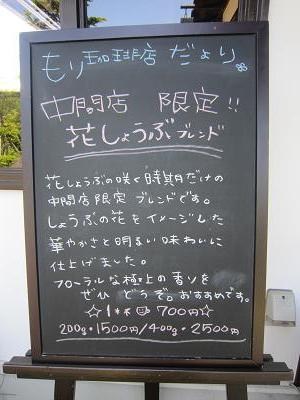 もり珈琲店 だより
中間店 限定!!
花しょうぶブレンド
花しょうぶの咲く時期だけの
中間店限定 ブレンドです。
しょうぶの花をイメージした
華やかさと明るい味わいに
仕上げました。
フローラルな極上の香りを
ぜひ どうぞ。おすすめです。
☆ 700円☆
200g・1500円/400g・2500円